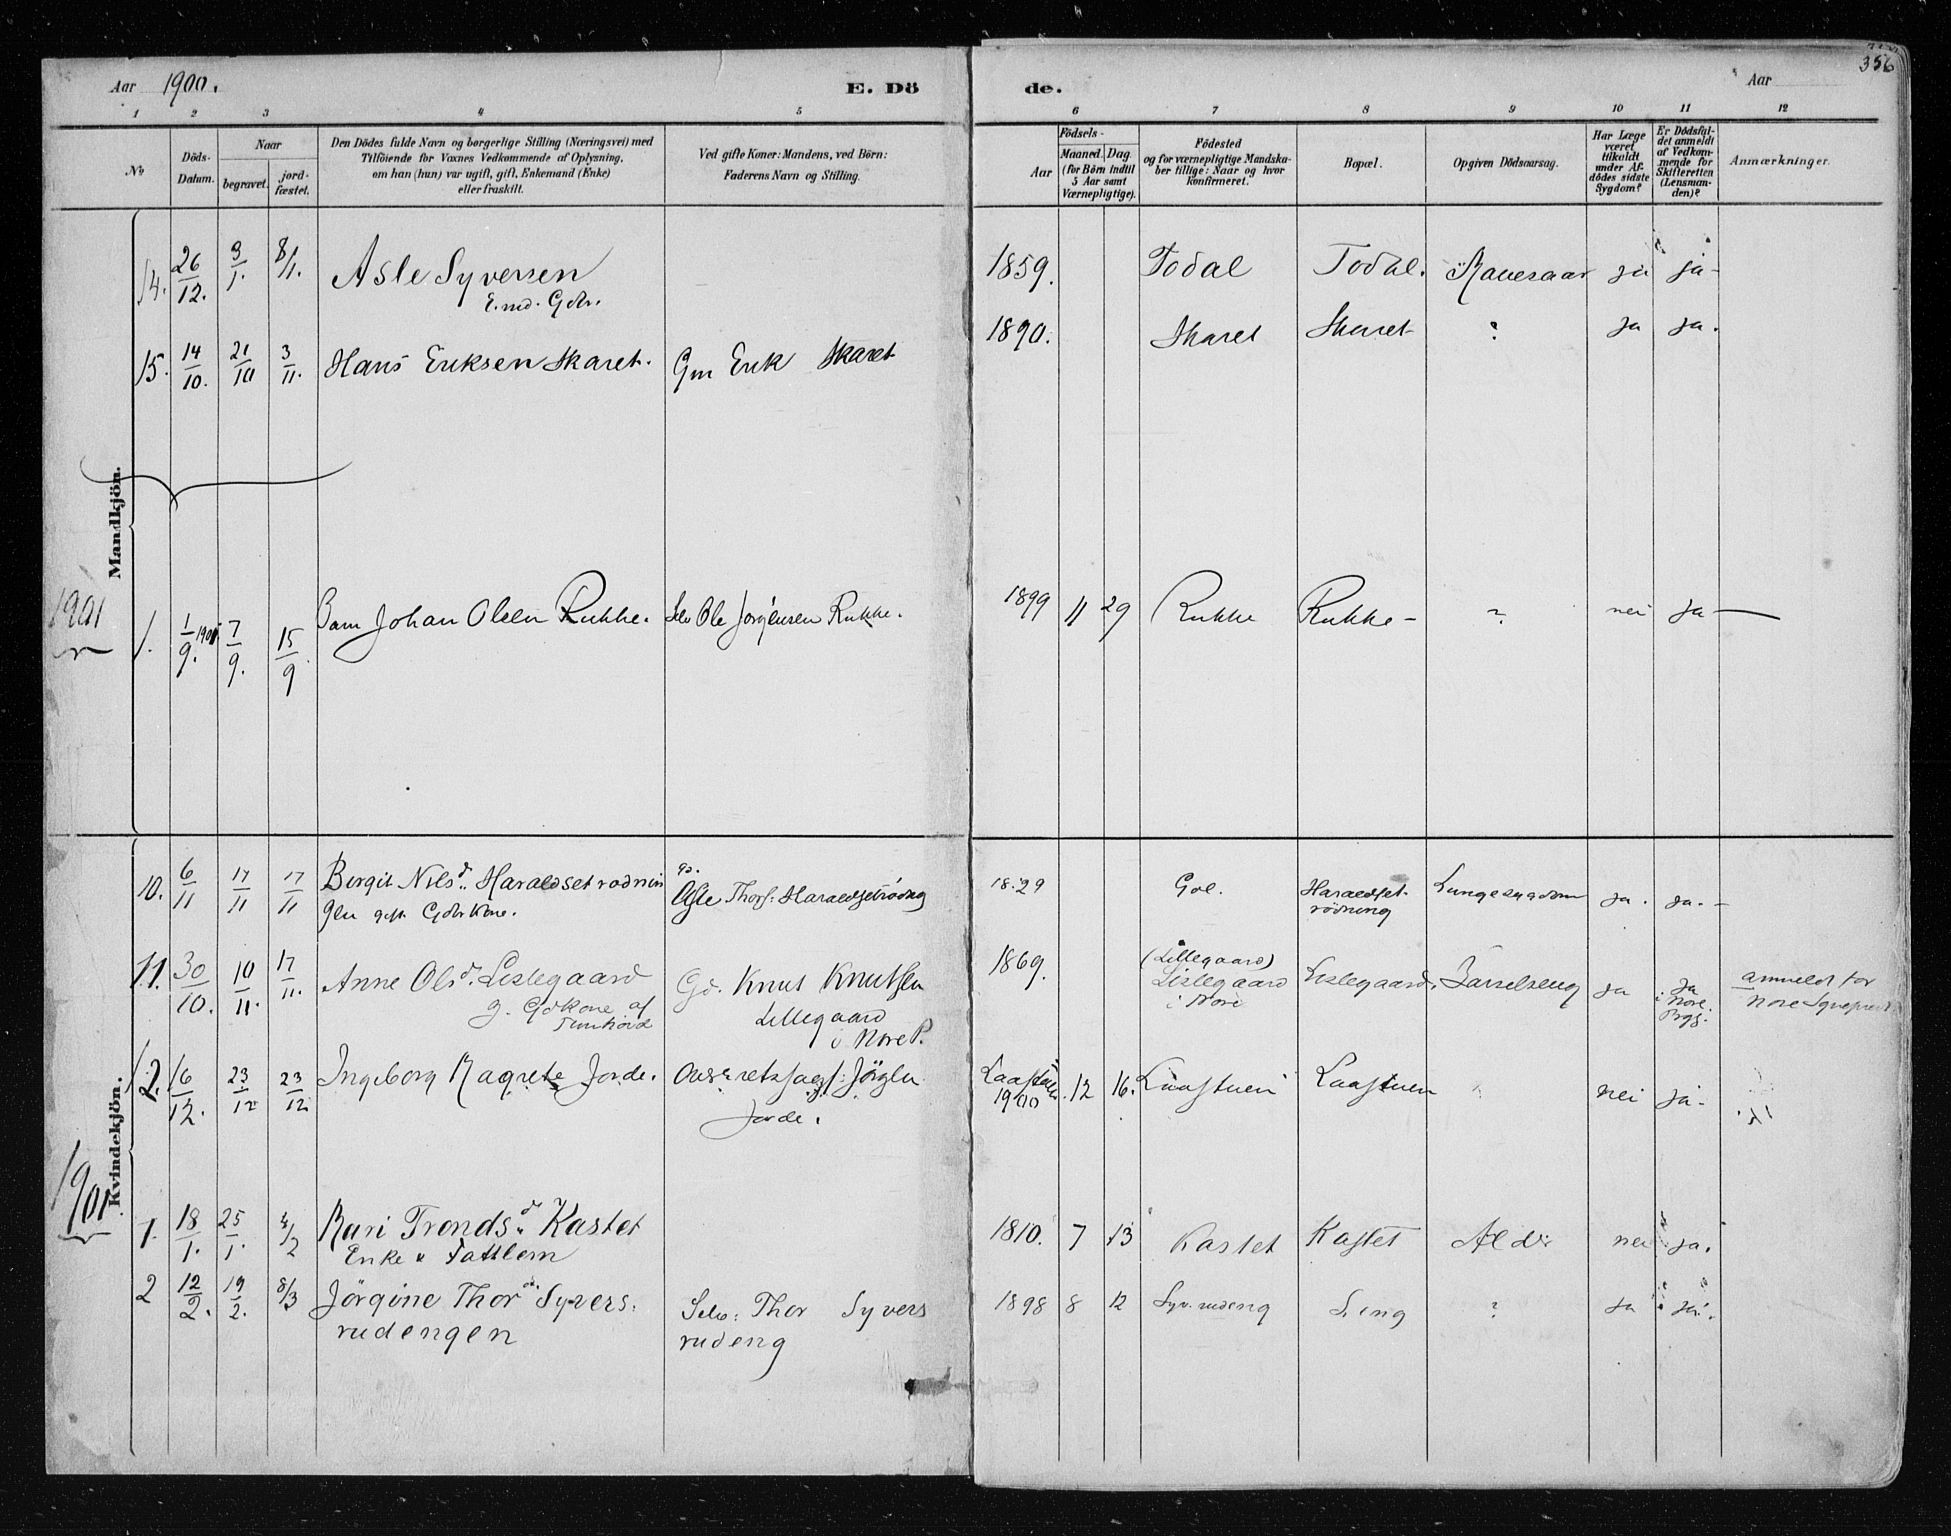 Aar 1900.
E. Dö
de.
Aar
356
1 2 3 4 5 6 7 8 9 10 11 12
No
Döds-
Datum.
Naar
begravet.
jord-
fæstet.
Den Dödes fulde Navn og borgerlige Stilling (Næringsvei) med
Tilföiende for Voxnes Vedkommende af Oplysning,
om han (hun) var ugift, gift, Enkemand (Enke)
eller fraskilt.
Ved gifte Koner: Mandens, ved Börn:
Faderens Navn og Stilling.
Födsels-
Aar
Maaned. Dag.
(for Börn indtil
5 Aar samt
Værnepligtige).
Födested
og for værnepligtige Mandska-
ber tillige: Naar og hvor
konfirmeret.
Bopæl.
Opgiven Dödsaarsag.
Har Læge
været
tilkaldt
under Af-
dödes sidste
Sygdom?
Er Dödsfal-
det anmeldt
af Vedkom-
mende for
Skifteretten
(Lensman-
den)?
Anmærkninger.
Mandkjön.
14. 26/12. 3/1. 8/1. Asle Syversen 1859. Todal Todal. ja ja-
E.md. Gdbr.
15. 14/10. 21/10 3/11. Hans Eriksen Skaret. Gm Erik Skaret 1890. Skaret Skaret ? ja ja.
1901
1. 1/9. 1901 7/9. 15/9 Barn Johan Olsen Rukke. Selv Ole Jorgensen Rukke. 1899 11 29 Rukke Rukke - ? nei ja —
Kvindekjön.
10. 6/11 17/11 17/11 Bergit Nilsd. Haraldset rodnin gd. Asle Thors. Haraldsetrödng 1829 Gol. Haraldset-
rödning Lungesygdom ja. ja. -
gift Gdbrkone.
11. 30/10. 10/11. 17/11. Anne Olsd. Lislegaard Gd. Knut Knutsen 1869. (Lillegaard)
Lislegaard
i Nore Lislegaard. Barselseng ja ja
i Nore
Pgj. anmeldt for
Nore
g. Gdkone af
Tunhovd
Lillegaard
i Nore P.
12. 16/12. 23/12 23/12. Ingeborg Ragrete Jorde. Jörgen
Jorde. Laastuen
1900 12 16. Laastuen Laastuen nei ja-
1901
1. 18/1. 25/1. 4/2 Kari Trondsd. Kastet 1810. 7 13 Kastet Kastet Alder nei ja.
Enke Fattlem
2 12/2. 19/2. 8/3 Jörgine Thord. Syvers.
rudengen Selv: Thor Syvers
rudeng 1898 8 12 Syv.rudeng S.eng ? ja ja.